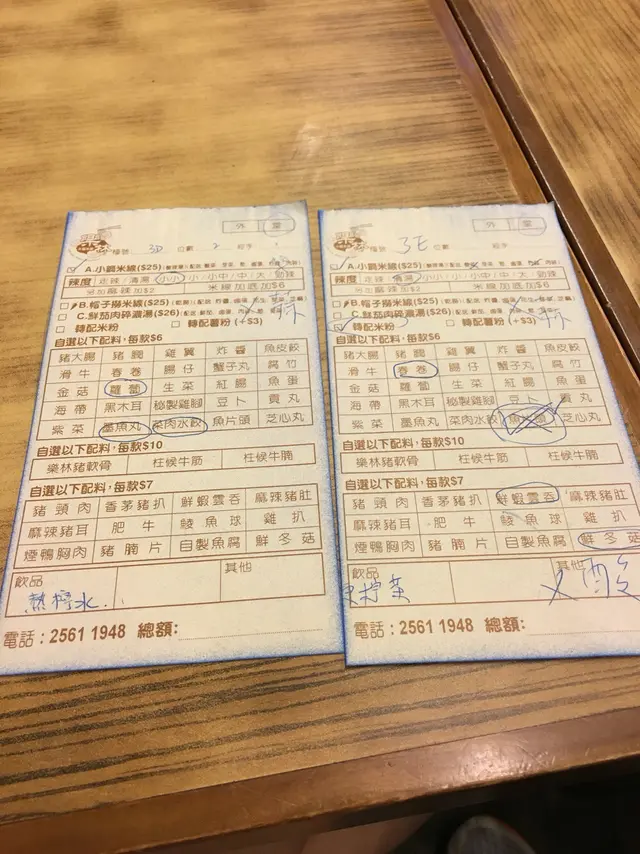 外 堂
檯號 3D 位數 2 經手
A.小鍋米線($25)
辣度 走辣 清湯 小小 小 小中 中 大 勁辣
另加麻辣加$2 米線加底加$6
B.帽子撈米線($25)
C.鮮茄肉碎濃湯($26)
轉配米粉 轉配薯粉 (+$3)
自選以下配料,每款$6
豬大腸 豬膶 雞翼 炸醬 魚皮餃
滑牛 春卷 腸仔 蟹子丸 腐竹
金菇 蘿蔔 生菜 紅腸 魚蛋
海帶 黑木耳 秘製雞腳 豆卜 貢丸
紫菜 墨魚丸 菜肉水餃 魚片頭 芝心丸
自選以下配料,每款$10
樂林豬軟骨 柱候牛筋 柱候牛腩
自選以下配料,每款$7
豬頸肉 香茅豬扒 鮮蝦雲吞 麻辣豬肚
麻辣豬耳 肥牛 鯪魚球 雞扒
煙鴨胸肉 豬腩片 自製魚腐 鮮冬菇
飲品 其他
熱檸水
電話:2561 1948 總額:
外 堂
檯號 3E 位數 經手
A.小鍋米線($25)
辣度 走辣 清湯 小小 小 小中 中 大 勁辣
另加麻辣加$2 米線加底加$6
B.帽子撈米線($25)
C.鮮茄肉碎濃湯($26)
轉配米粉 轉配薯粉 (+$3)
自選以下配料,每款$6
豬大腸 豬膶 雞翼 炸醬 魚皮餃
滑牛 春卷 腸仔 蟹子丸 腐竹
金菇 蘿蔔 生菜 紅腸 魚蛋
海帶 黑木耳 秘製雞腳 豆卜 貢丸
紫菜 墨魚丸 菜肉水餃 魚片頭 芝心丸
自選以下配料,每款$10
樂林豬軟骨 柱候牛筋 柱候牛腩
自選以下配料,每款$7
豬頸肉 香茅豬扒 鮮蝦雲吞 麻辣豬肚
麻辣豬耳 肥牛 鯪魚球 雞扒
煙鴨胸肉 豬腩片 自製魚腐 鮮冬菇
飲品 其他
凍檸茶 X 酸
電話:2561 1948 總額: